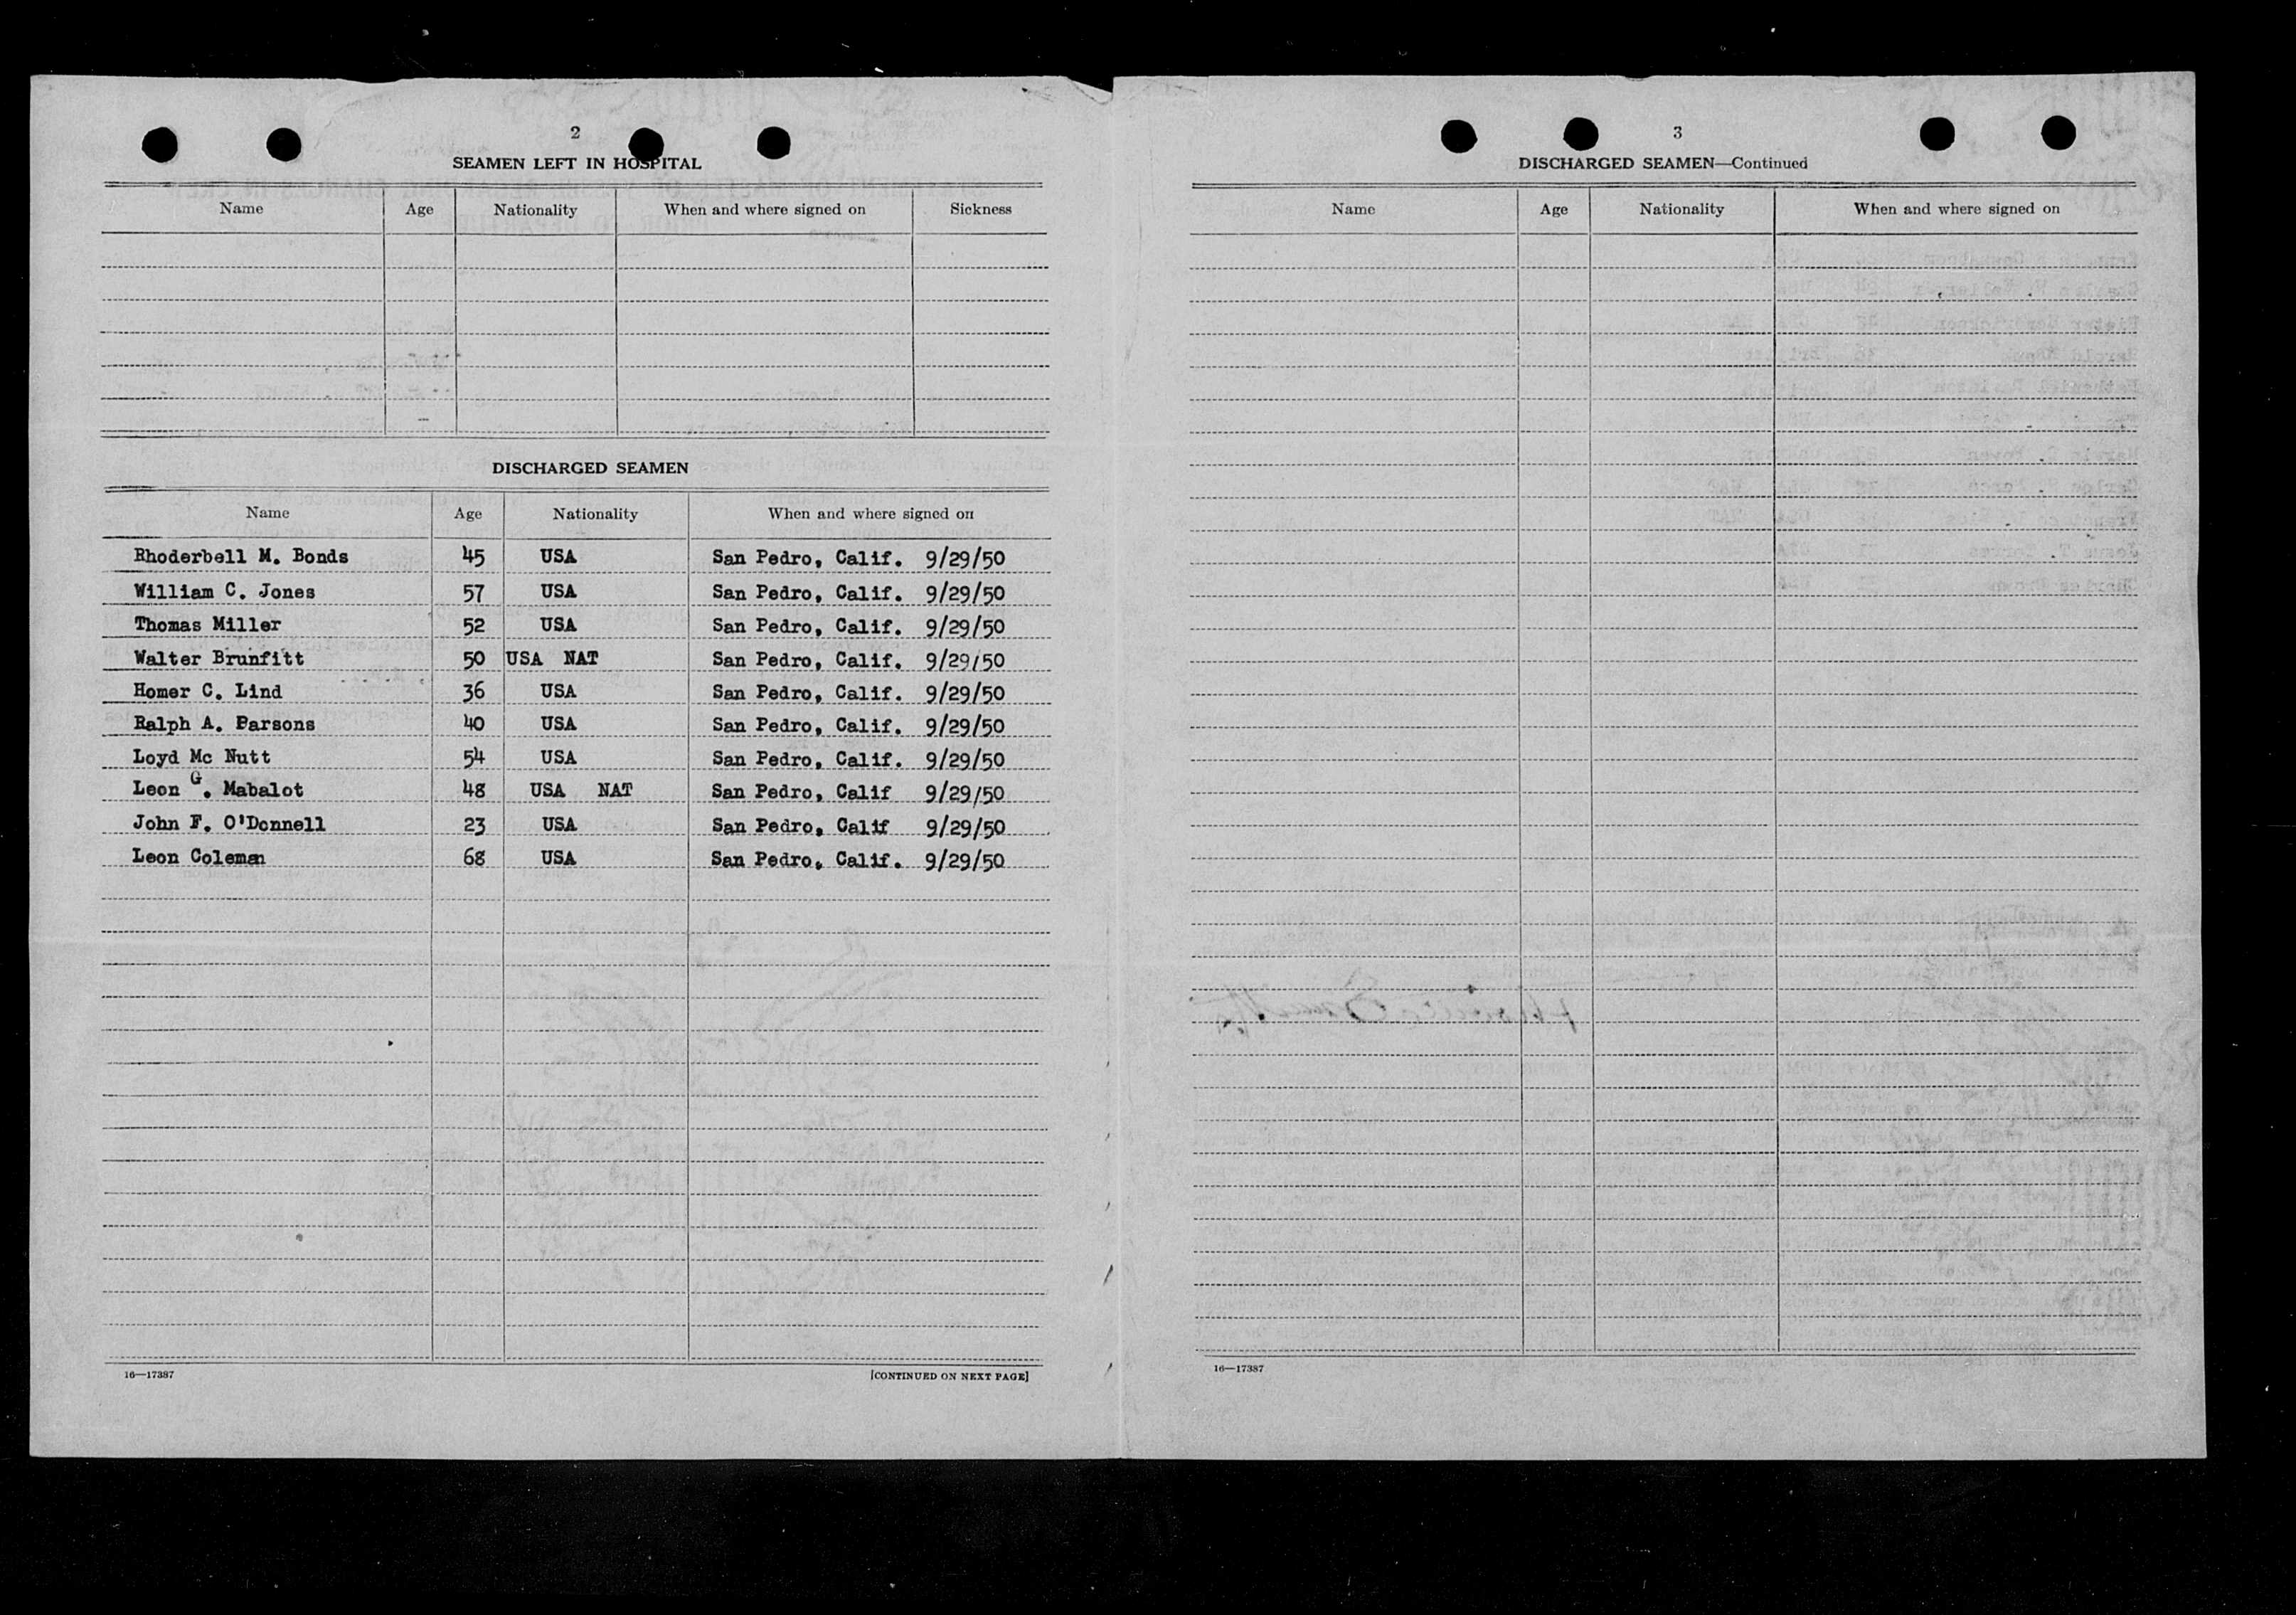 2
SEAMEN LEFT IN HOSPITAL
Name Age Nationality When and where signed on Sickness
DISCHARGED SEAMEN
Name Age Nationality When and where signed on
Rhoderbell M. Bonds 45 USA San Pedro, Calif. 9/29/50
William C. Jones 57 USA San Pedro, Calif. 9/29/50
Thomas Miller 52 USA San Pedro, Calif. 9/29/50
Walter Brunfitt 50 USA NAT San Pedro, Calif. 9/29/50
Homer C. Lind 36 USA San Pedro, Calif. 9/29/50
Ralph A. Parsons 40 USA San Pedro, Calif. 9/29/50
Loyd Mc Nutt 54 USA San Pedro, Calif. 9/29/50
Leon G. Mabalot 48 USA NAT San Pedro, Calif 9/29/50
John F. O'Donnell 23 USA San Pedro, Calif 9/29/50
Leon Coleman 68 USA San Pedro, Calif. 9/29/50
16—17387 [CONTINUED ON NEXT PAGE]
3
DISCHARGED SEAMEN—Continued
Name Age Nationality When and where signed on
16—17387